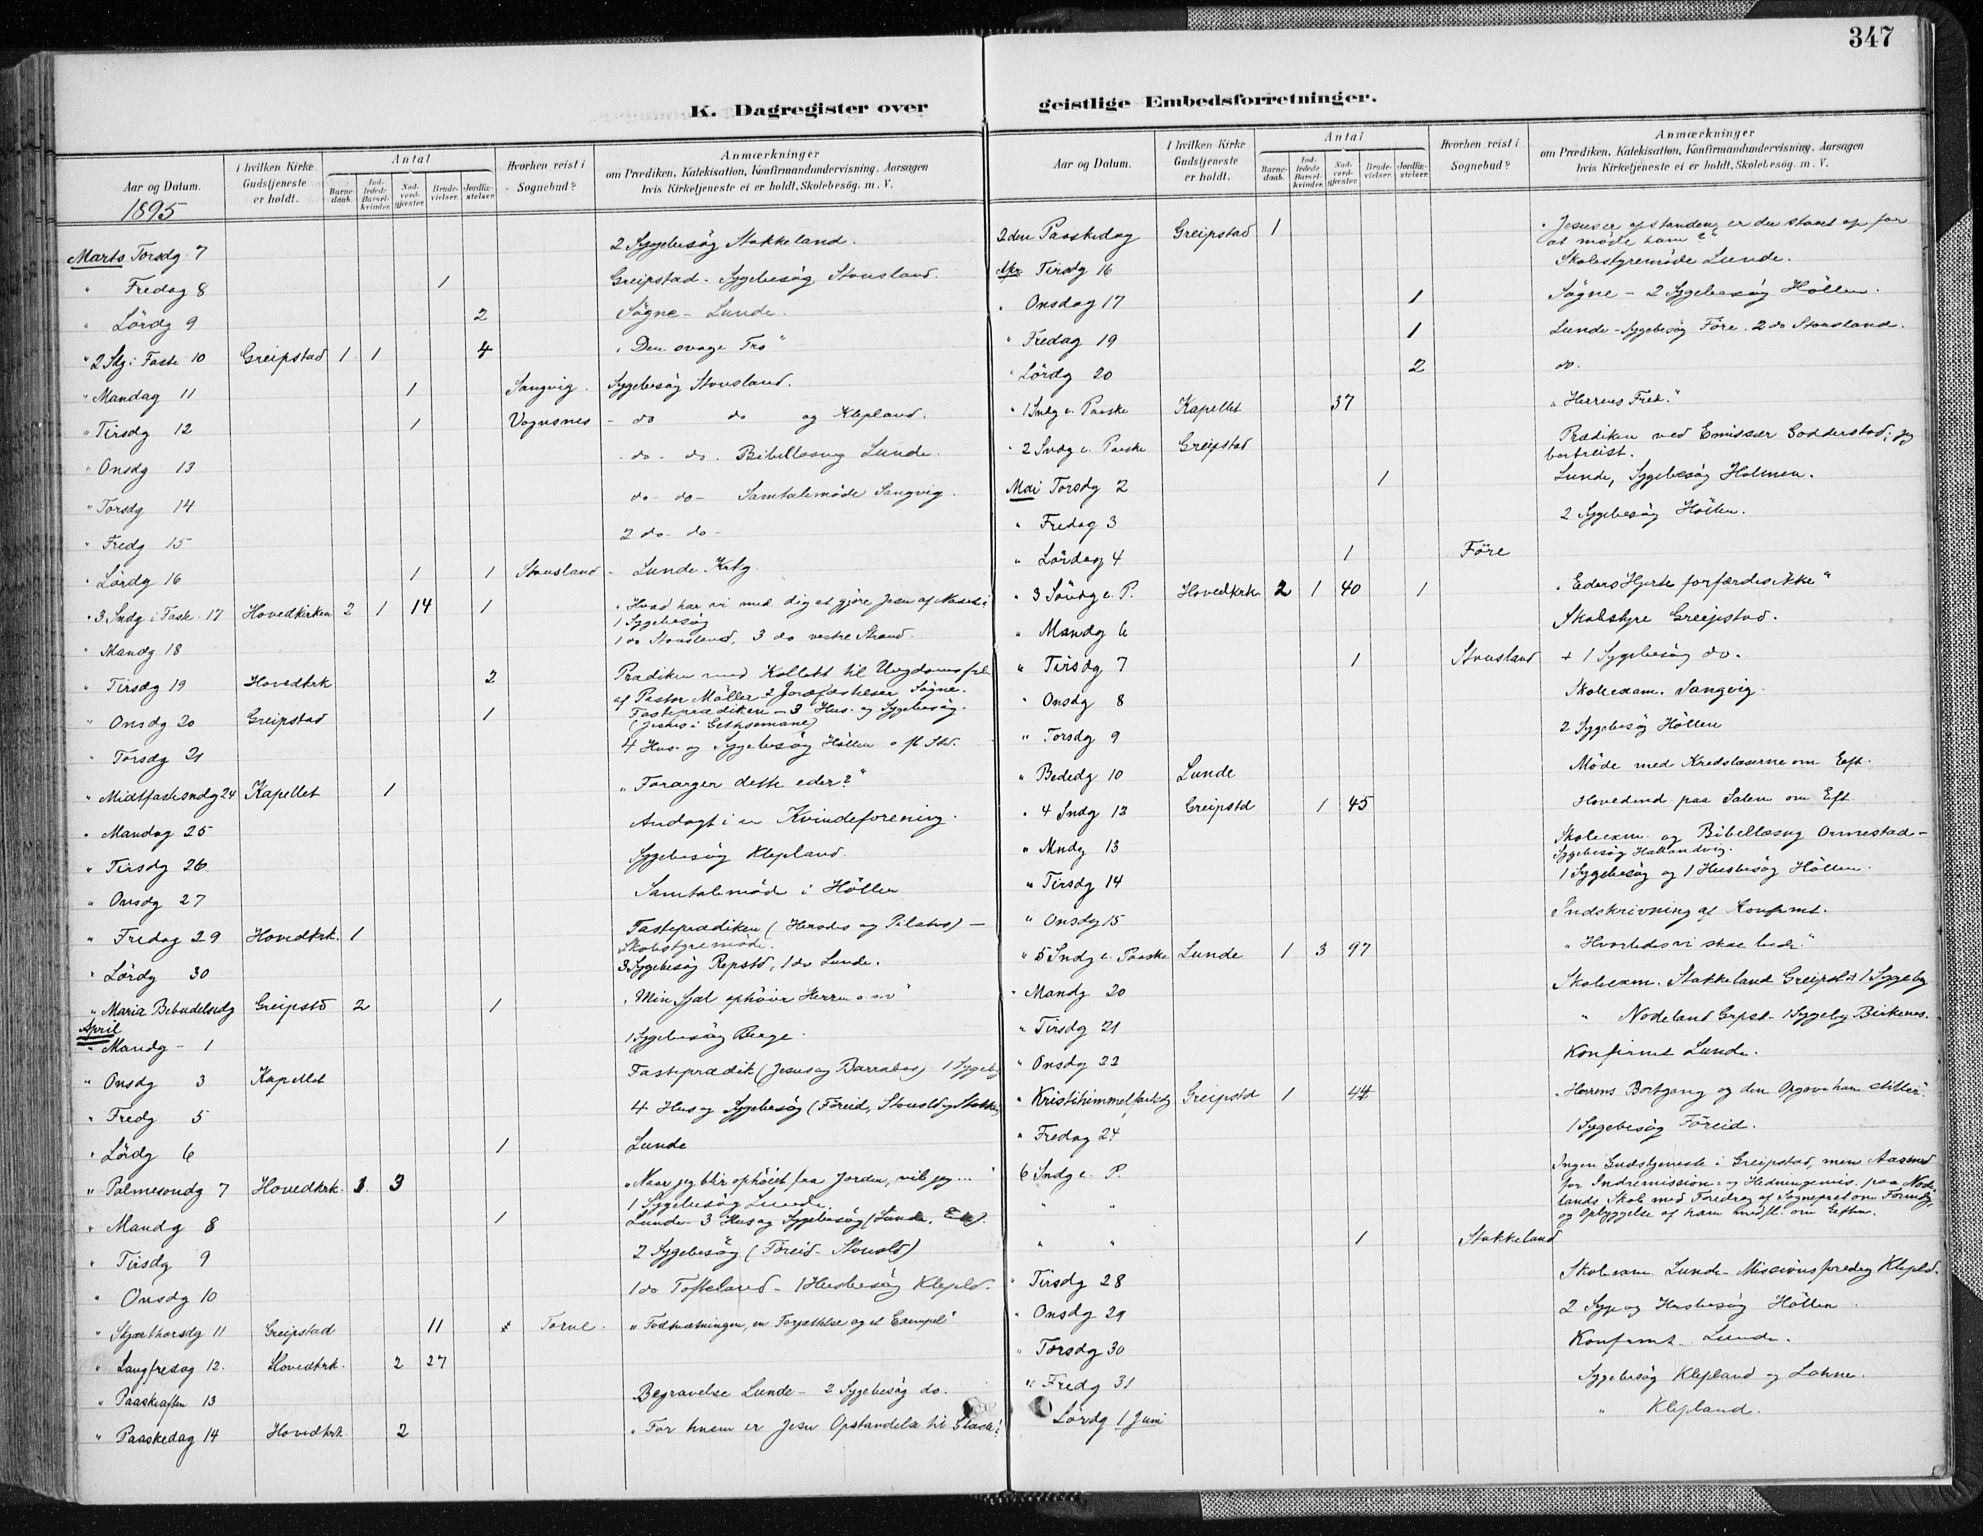 347
K. Dagregister over geistlige Embedsforretninger.
Aar og Datum.
I hvilken Kirke Gudstjeneste er holdt.
Antal
Barnedaab.
Indledede Barselkvinder.
Nadverdgjester.
Brudevielser.
Jordfæstelser.
Hvorhen reist i Sognebud?
Anmærkninger
om Prædiken, Katekisation, Konfirmandundervisning, Aarsagen
hvis Kirketjeneste ei er holdt, Skolebesøg. m. V.
1895
Marts Torsdg 7 2 Sygebesög Stokkeland.
" Fredag 8 1 Greipstad - Sygebesög Stousland
" Lördg 9 2 Sögne - Lunde.
" 2 Sdg i Faste 10 Greipstad 1 1 4 "Den svage Tro"
" Mandag 11 1 Sangvig. Sygebesög Stousland.
" Tirsdg 12 1 Vognsnes - do do og Klepland.
" Onsdg 13 - do - do. Bibellæsng Lunde.
" Torsdg 14 do - do - Samtalemöde Sangvig.
" Fredg 15 2 do - do -
" Lördg 16 1 1 Stousland - Lunde Krkg.
" 3 Sndg i Faste 17 Hovedkirken 2 1 14 1 "Hvad har vi med dig at gjöre Jesu af
1 Sygebesög
" Mandg 18 1 do Stousland, 3 do vestre Strand.
" Tirsdg 19 Hovedkrk 2 Prædiken med Kollekt til
af Pastor Möller - 2 Jordfæstelser Sögne.
" Onsdg 20 Greipstad 1 Fasteprædiken - 3 Hus- og Sygebesög.
(Jesus i Gethsemane)
" Torsdg 21 4 Hus- og Sygebesög Höllen o fl Std.
" Midtfastesndg 24 Kapellet 1 "Forarger dette eder?"
" Mandag 25 Andagt i en Kvindeforening.
" Tirsdg 26 Sygebesög Klepland.
" Onsdg 27 Samtalemöde i Höllen
" Fredag 29 Hovedkrk. 1 Fasteprædiken (Herodes og Pilatus) -
Skolestyremöde.
" Lördg 30 3 Sygebesög Repstd, 1 do Lunde.
" Maria Bebudelsedg Greipstd 2 1 "Min Sjæl ophöier Herren o.s.v"
April
" Mandg - 1 1 Sygebesög Berge.
" Onsdg 3 Kapellet Fasteprædik (Jesus og Barrabas) 1 Sygebg
" Fredg 5 4 Hus og Sygebesög (Föreid, Stousld og Stokkel
" Lördg 6 1 Lunde
" Palmesondg 7 Hovedkrk. 1 3 "Naar jeg blir ophöiet fra Jorden, vil jeg ..."
1 Sygebesög Lunde
" Mandg 8 1 Lunde - 3 Hus og Sygebesög (Lunde,
" Tirsdg 9 2 Sygebesög (Föreid - Stousld)
" Onsdg 10 1 do Tofteland - 1 Husbesög Klepld.
" Skjærthorsdg 11 Greipstad 11 Torve. "Fodtvætningen, en Forjættelse og et Exempel"
" Langfredag 12. Hovedkrk. 2 27
" Paaskeaften 13 Begravelse Lunde - 2 Sygebesög do.
" Paaskedag 14 Hovedkrk 2 "For hvem er Jesu Opstandelse til Glæde?
Aar og Datum.
I hvilken Kirke Gudstjeneste er holdt.
Antal
Barnedaab.
Indledede Barselkvinder.
Nadverdgjester.
Brudevielser.
Jordfæstelser.
Hvorhen reist i Sognebud?
Anmærkninger
om Prædiken, Katekisation, Konfirmandundervisning, Aarsagen
hvis Kirketjeneste ei er holdt, Skolebesög. m. V.
2den Paaskedag Greipstad 1 "Jesus er opstanden, er du staaet op for
at möde ham?"
Apr Tirsdg 16 Skolestyremöde Lunde.
" Onsdag 17 1 Sögne - 2 Sygebesög Höllen.
" Fredag 19 1 Lunde - Sygebesög Före. 2 do Stousland.
" Lördg 20 2 do.
" 1 Sndg e. Paaske Kapellet 37 "Herrens Fred."
" 2 Sndg e. Paaske Greipstad Prædiken ved Emissær Godderstad; jeg
bortreist.
Mai Torsdg 2 1 Lunde, Sygebesög Holmen.
" Fredag 3 2 Sygebesög Höllen.
" Lördag 4 1 Före
" 3 Söndg e. P. Hovedkrk 2 1 40 1 "Eders Hjerte forfærdes ikke"
" Mandg 6 Skolestyre Greipstad.
" Tirsdg 7 1 Stousland + 1 Sygebesög do.
" Onsdg 8 Skoleexam. Sangvig.
" Torsdg 9 2 Sygebesög Höllen
" Bededg 10 Lunde Möde med Kredslæserne om Eeft.
" 4 Sndg 12 Greipstd 1 45 Hovedind paa Salem om Eft.
" Mndg 13 Skoleexm. og Bibellæsng Ormestad -
Sygebesög Hallandvig.
" Tirsdg 14 1 Sygebesög og 1 Husbesög Höllen.
" Onsdg 15 Indskrivning af Konfirmt.
" 5 Sndg e. Paaske Lunde 1 3 97 "Hvorledes vi skal bede."
" Mandg 20 Skoleexm. Stokkeland Greipstd 1 Sygebg
" Tirsdg 21 " Nodeland Grpst - 1 Sygebg Birkenes.
" Onsdg 22 Konfirmt Lunde.
" Kristihimmelfartsdg Greipstd 1 44 "Herrens Bortgang og den Opgave han stiller".
" Fredag 24 1 Sygebesög Föreid.
6 Sndg e. P. Ingen Gudstjeneste i Greipstad, men Aasmöd
for Indremission og Hedningemis. paa Node-
lands Skole med Foredrag af Sogneprst om Formdg,
og Opbyggelse af ham med fl. om Eeften.
" " 1 Stokkeland
" Tirsdg 28 Skoleexm Lunde - Missionsforedrg Klepld.
" Onsdg 29 2 Syge og Husbesög Höllen
" Torsdg 30 Konfirmt - Lunde.
" Fredg 31 Sygebesög Klepland og Lohne.
Lördg 1 Juni " Klepland.